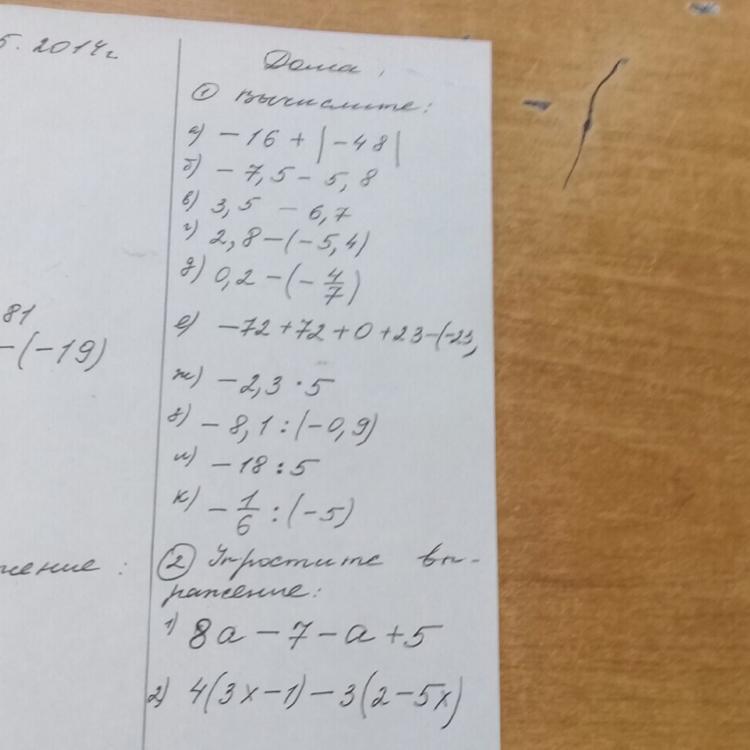 5. 2014г
81
-(-19)
жение :
Дома,
① Вычислите:
а) -16 + |-48|
б) -7,5 - 5,8
в) 3,5 - 6,7
г) 2,8-(-5,4)
д) 0,2-(-4/7)
е) -72+72+0+23-(-23,
ж) -2,3 · 5
з) -8,1 : (-0,9)
и) -18 : 5
к) -1/6 : (-5)
② Упростите вы-
ражение:
1) 8а-7-а+5
2) 4(3x-1)-3(2-5x)